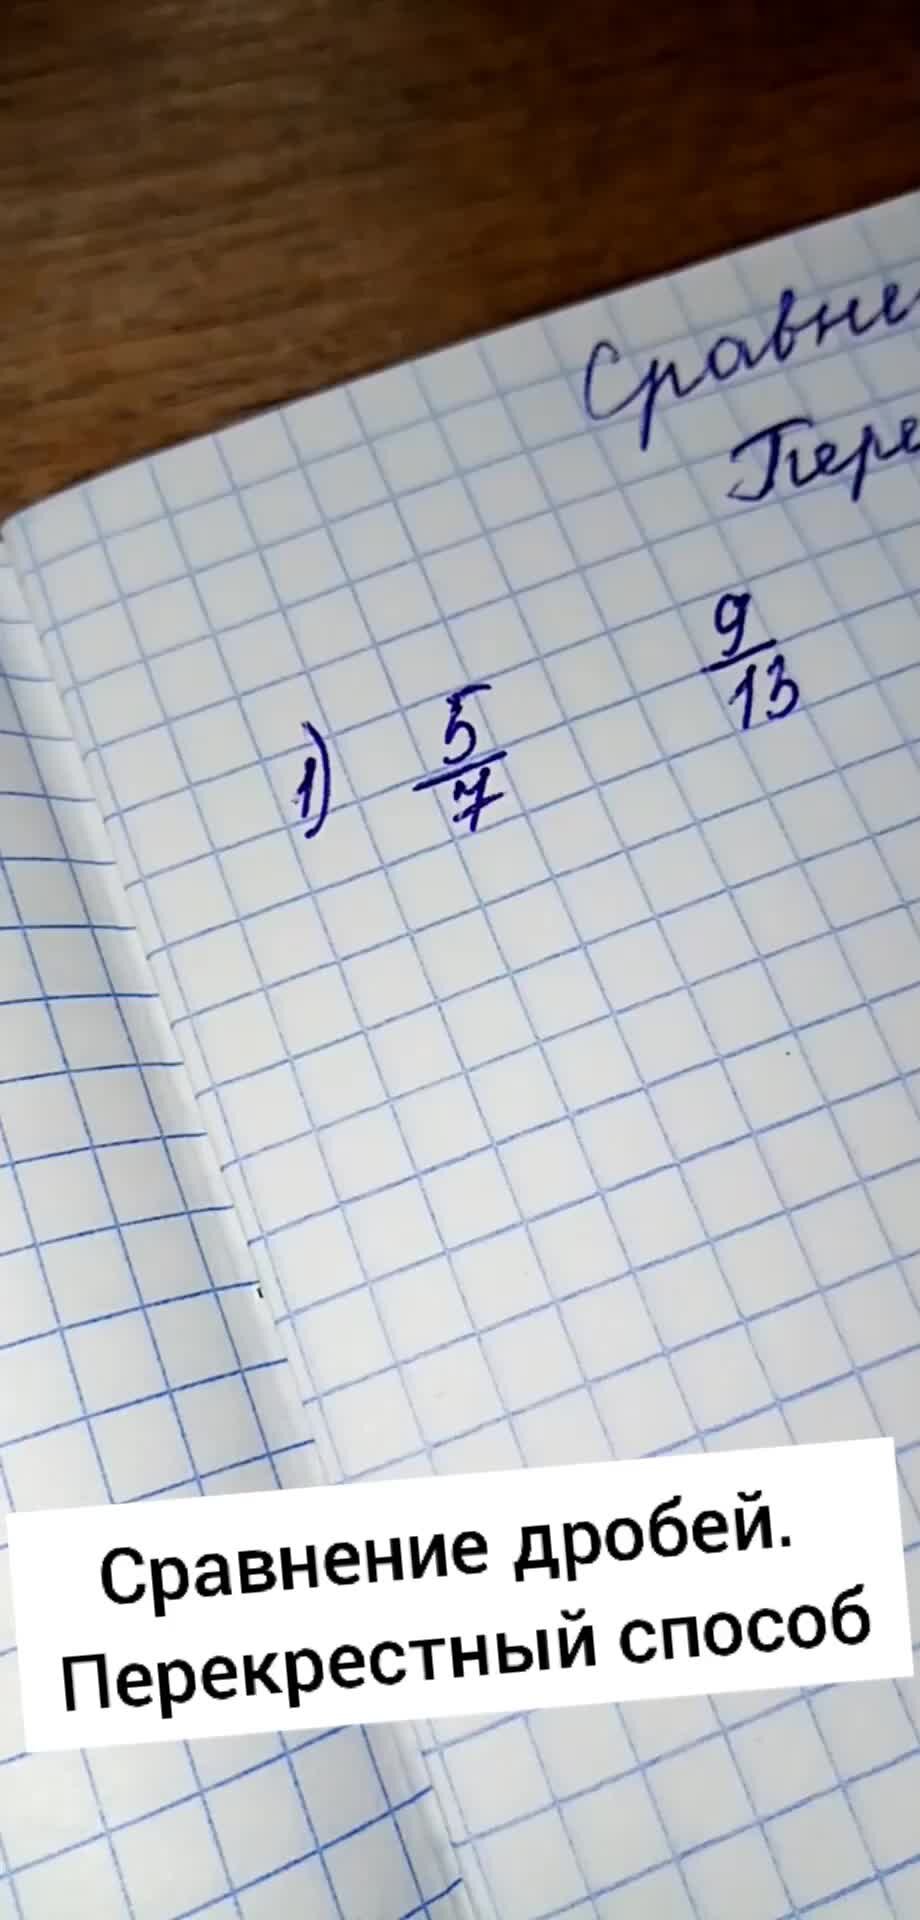 Сравне
Пере
1) 5/7 9/13
Сравнение дробей.
Перекрестный способ